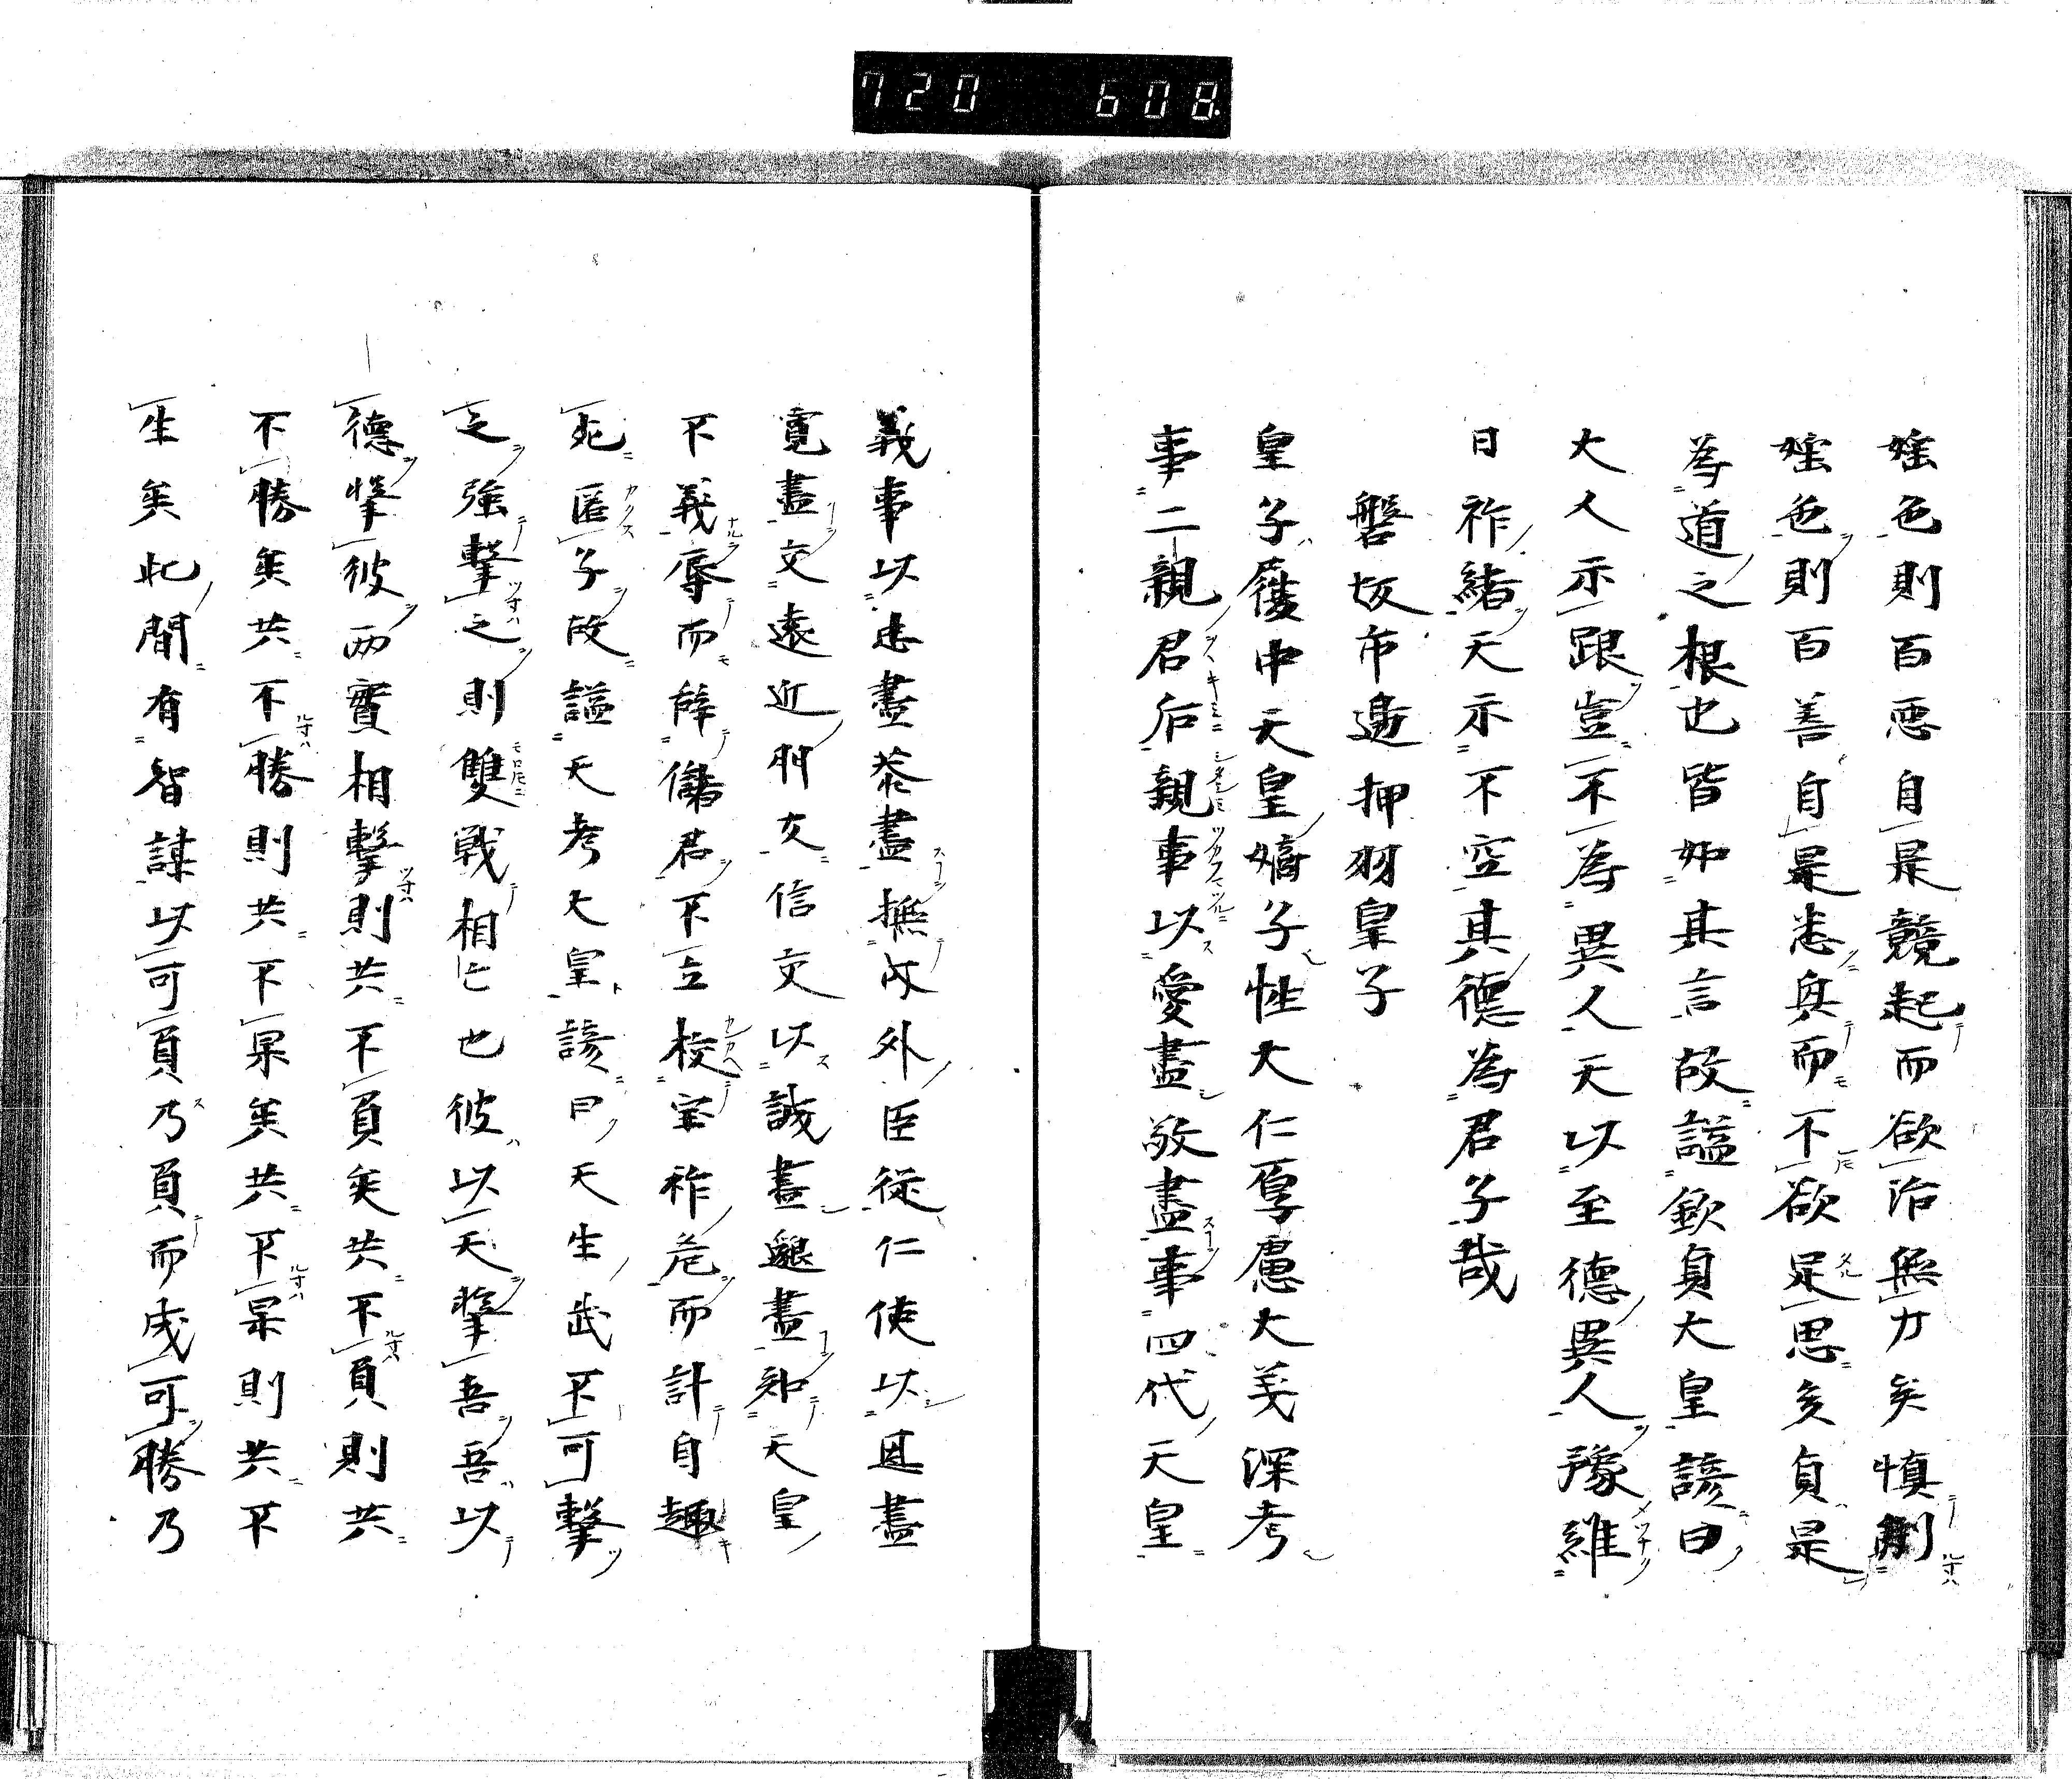 720 608.
婬色則百惡自是競起而欲治無力矣慎剛
婬色則百善自是悉與而不欲足思亥貞是
為道之根也皆如其言故諡欽貞大皇諺曰
大人示跟豈不為異人天以至德異人豫維
日祚緒天示不空其德為君子哉
磐坂市邊押羽皇子
皇子履中天皇嫡子性大仁厚慮大義深考
事二親君后親事以愛盡敬盡事四代天皇
義事以忠盡恭盡撫外臣從仁使以恩盡
寬盡交遠近朋友信交以誠盡退盡知天皇
不義辱而辞儲君不立校宝祚危而計自趣
死匿子故諡天考大皇諺曰天生武不可擊
之強擊之則雙戰相亡也彼以天擊吾吾以
德擊彼兩實相擊則共不負矣共不負則共
不勝矣共不勝則共不杲矣共不杲則共不
生矣此間有智謀以可負乃負而成可勝乃